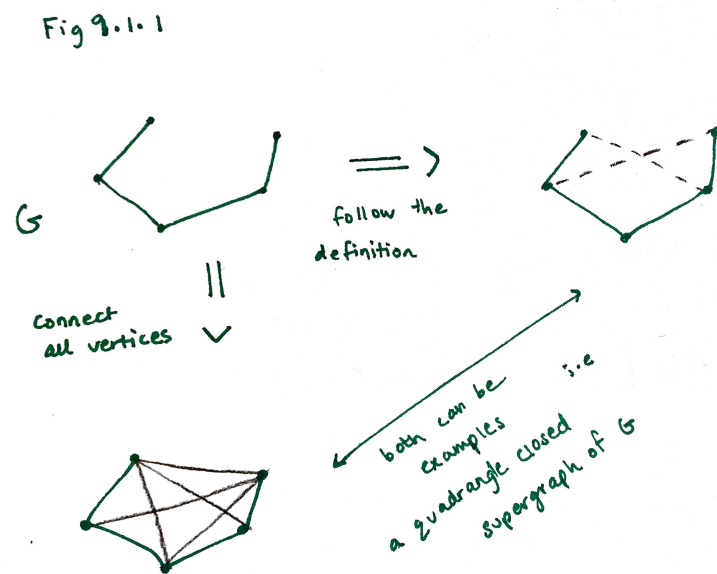 Fig 9.1.1
G
follow the
definition
connect
all vertices
both can be
examples i.e
a quadrangle closed
supergraph of G